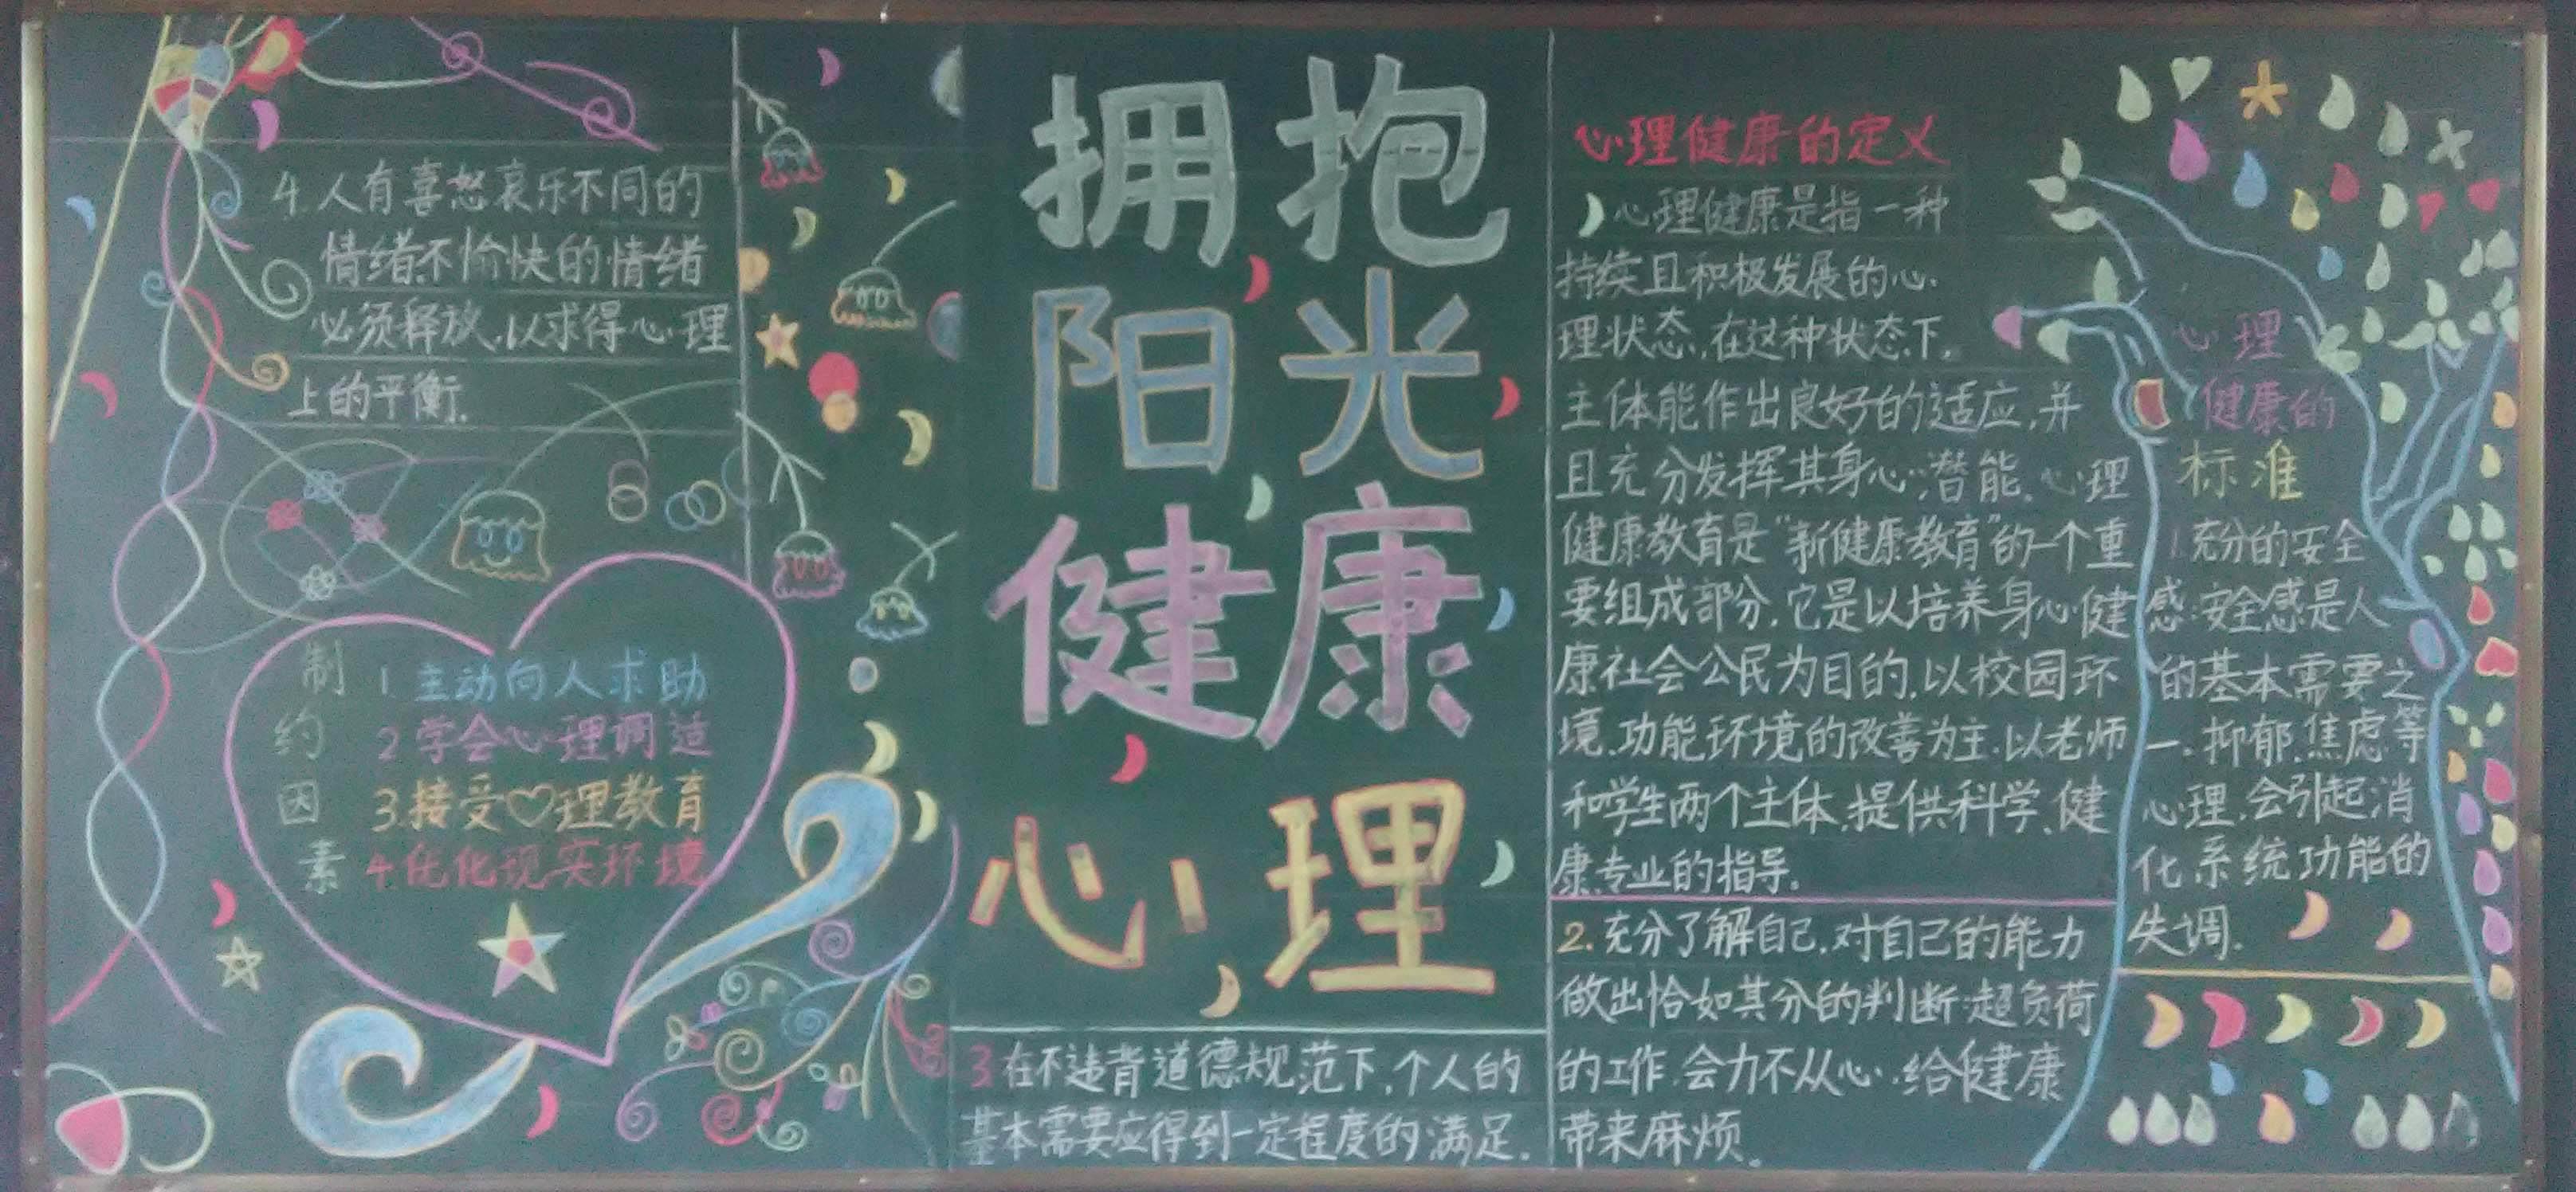 拥抱
阳光
健康
心理
心理健康的定义
心理健康是指一种
持续且积极发展的心
理状态,在这种状态下,
主体能作出良好的适应,并
且充分发挥其身心潜能.心理
健康教育是“新健康教育”的一个重
要组成部分,它是以培养身心健
康社会公民为目的,以校园环
境.功能环境的改善为主.以老师
和学生两个主体,提供科学、健
康、专业的指导.
心理
健康的
标准
1.充分的安全
感:安全感是人
的基本需要之
一.抑郁.焦虑等
心理.会引起消
化系统功能的
失调.
2.充分了解自己,对自己的能力
做出恰如其分的判断:超负荷
的工作.会力不从心.给健康
带来麻烦.
3.在不违背道德规范下,个人的
基本需要应得到一定程度的满足.
4.人有喜怒哀乐不同的
情绪.不愉快的情绪
必须释放,以求得心理
上的平衡.
制约因素
1.主动向人求助
2.学会心理调适
3.接受♡理教育
4.优化现实环境